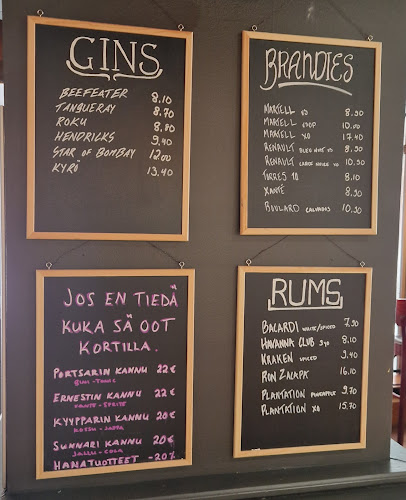 GINS
BEEFEATER 8.10
TANQUERAY 8.70
ROKU 8.80
HENDRICKS 9.40
STAR OF BOMBAY 12.00
KYRÖ 13.40
BRANDIES
MARTELL VS 8.90
MARTELL VSOP 10.00
MARTELL XO 17.40
RENAULT 8.90
RENAULT CARTE NOIRE XO 10.50
TORRES 10 8.10
XANTÉ 8.90
BOULARD CALVADOS 10.50
JOS EN TIEDÄ
KUKA SÄ OOT
KORTILLA.
PORTSARIN KANNU 22€
GINI-TONIC
ERNESTIN KANNU 22€
VANTE-SPRITE
KYYPPARIN KANNU 20€
KOSSU-JAFFA
SUNNARI KANNU 20€
JALLU-COLA
HANATUOTTEET -20%
RUMS
BACARDI WHITE/SPICED 7.90
HAVANNA CLUB 3yo 8.10
KRAKEN SPICED 9.40
RON ZACAPA 16.10
PLANTATION PINEAPPLE 9.70
PLANTATION XO 15.70